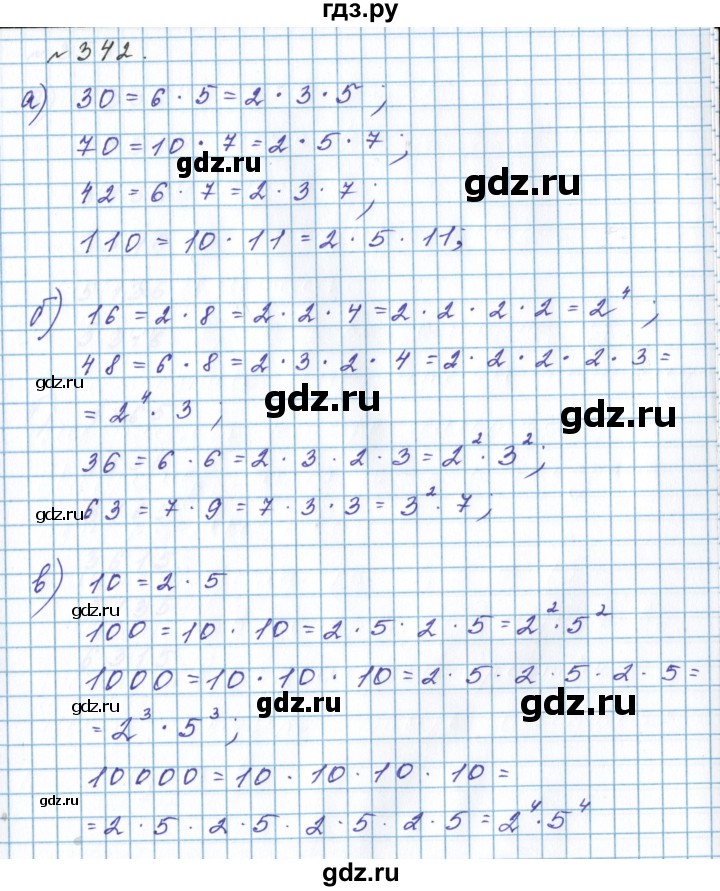 гдз.ру
№ 342.
а) 30 = 6 · 5 = 2 · 3 · 5 ;
70 = 10 · 7 = 2 · 5 · 7 ;
gdz.ru
gdz.ru
42 = 6 · 7 = 2 · 3 · 7 ;
110 = 10 · 11 = 2 · 5 · 11;
б) 16 = 2 · 8 = 2 · 2 · 4 = 2 · 2 · 2 · 2 = 2⁴ ;
48 = 6 · 8 = 2 · 3 · 2 · 4 = 2 · 2 · 2 · 2 · 3 =
gdz.ru
gdz.ru
= 2⁴ · 3 ;
gdz.ru
36 = 6 · 6 = 2 · 3 · 2 · 3 = 2² · 3² ;
gdz.ru
63 = 7 · 9 = 7 · 3 · 3 = 3² · 7 ;
в) 10 = 2 · 5
gdz.ru
gdz.ru
100 = 10 · 10 = 2 · 5 · 2 · 5 = 2² · 5²
1000 = 10 · 10 · 10 = 2 · 5 · 2 · 5 · 2 · 5 =
gdz.ru
gdz.ru
gdz.ru
= 2³ · 5³ ;
10000 = 10 · 10 · 10 · 10 =
gdz.ru
= 2 · 5 · 2 · 5 · 2 · 5 · 2 · 5 = 2⁴ · 5⁴
gdz.ru
gdz.ru
gdz.ru